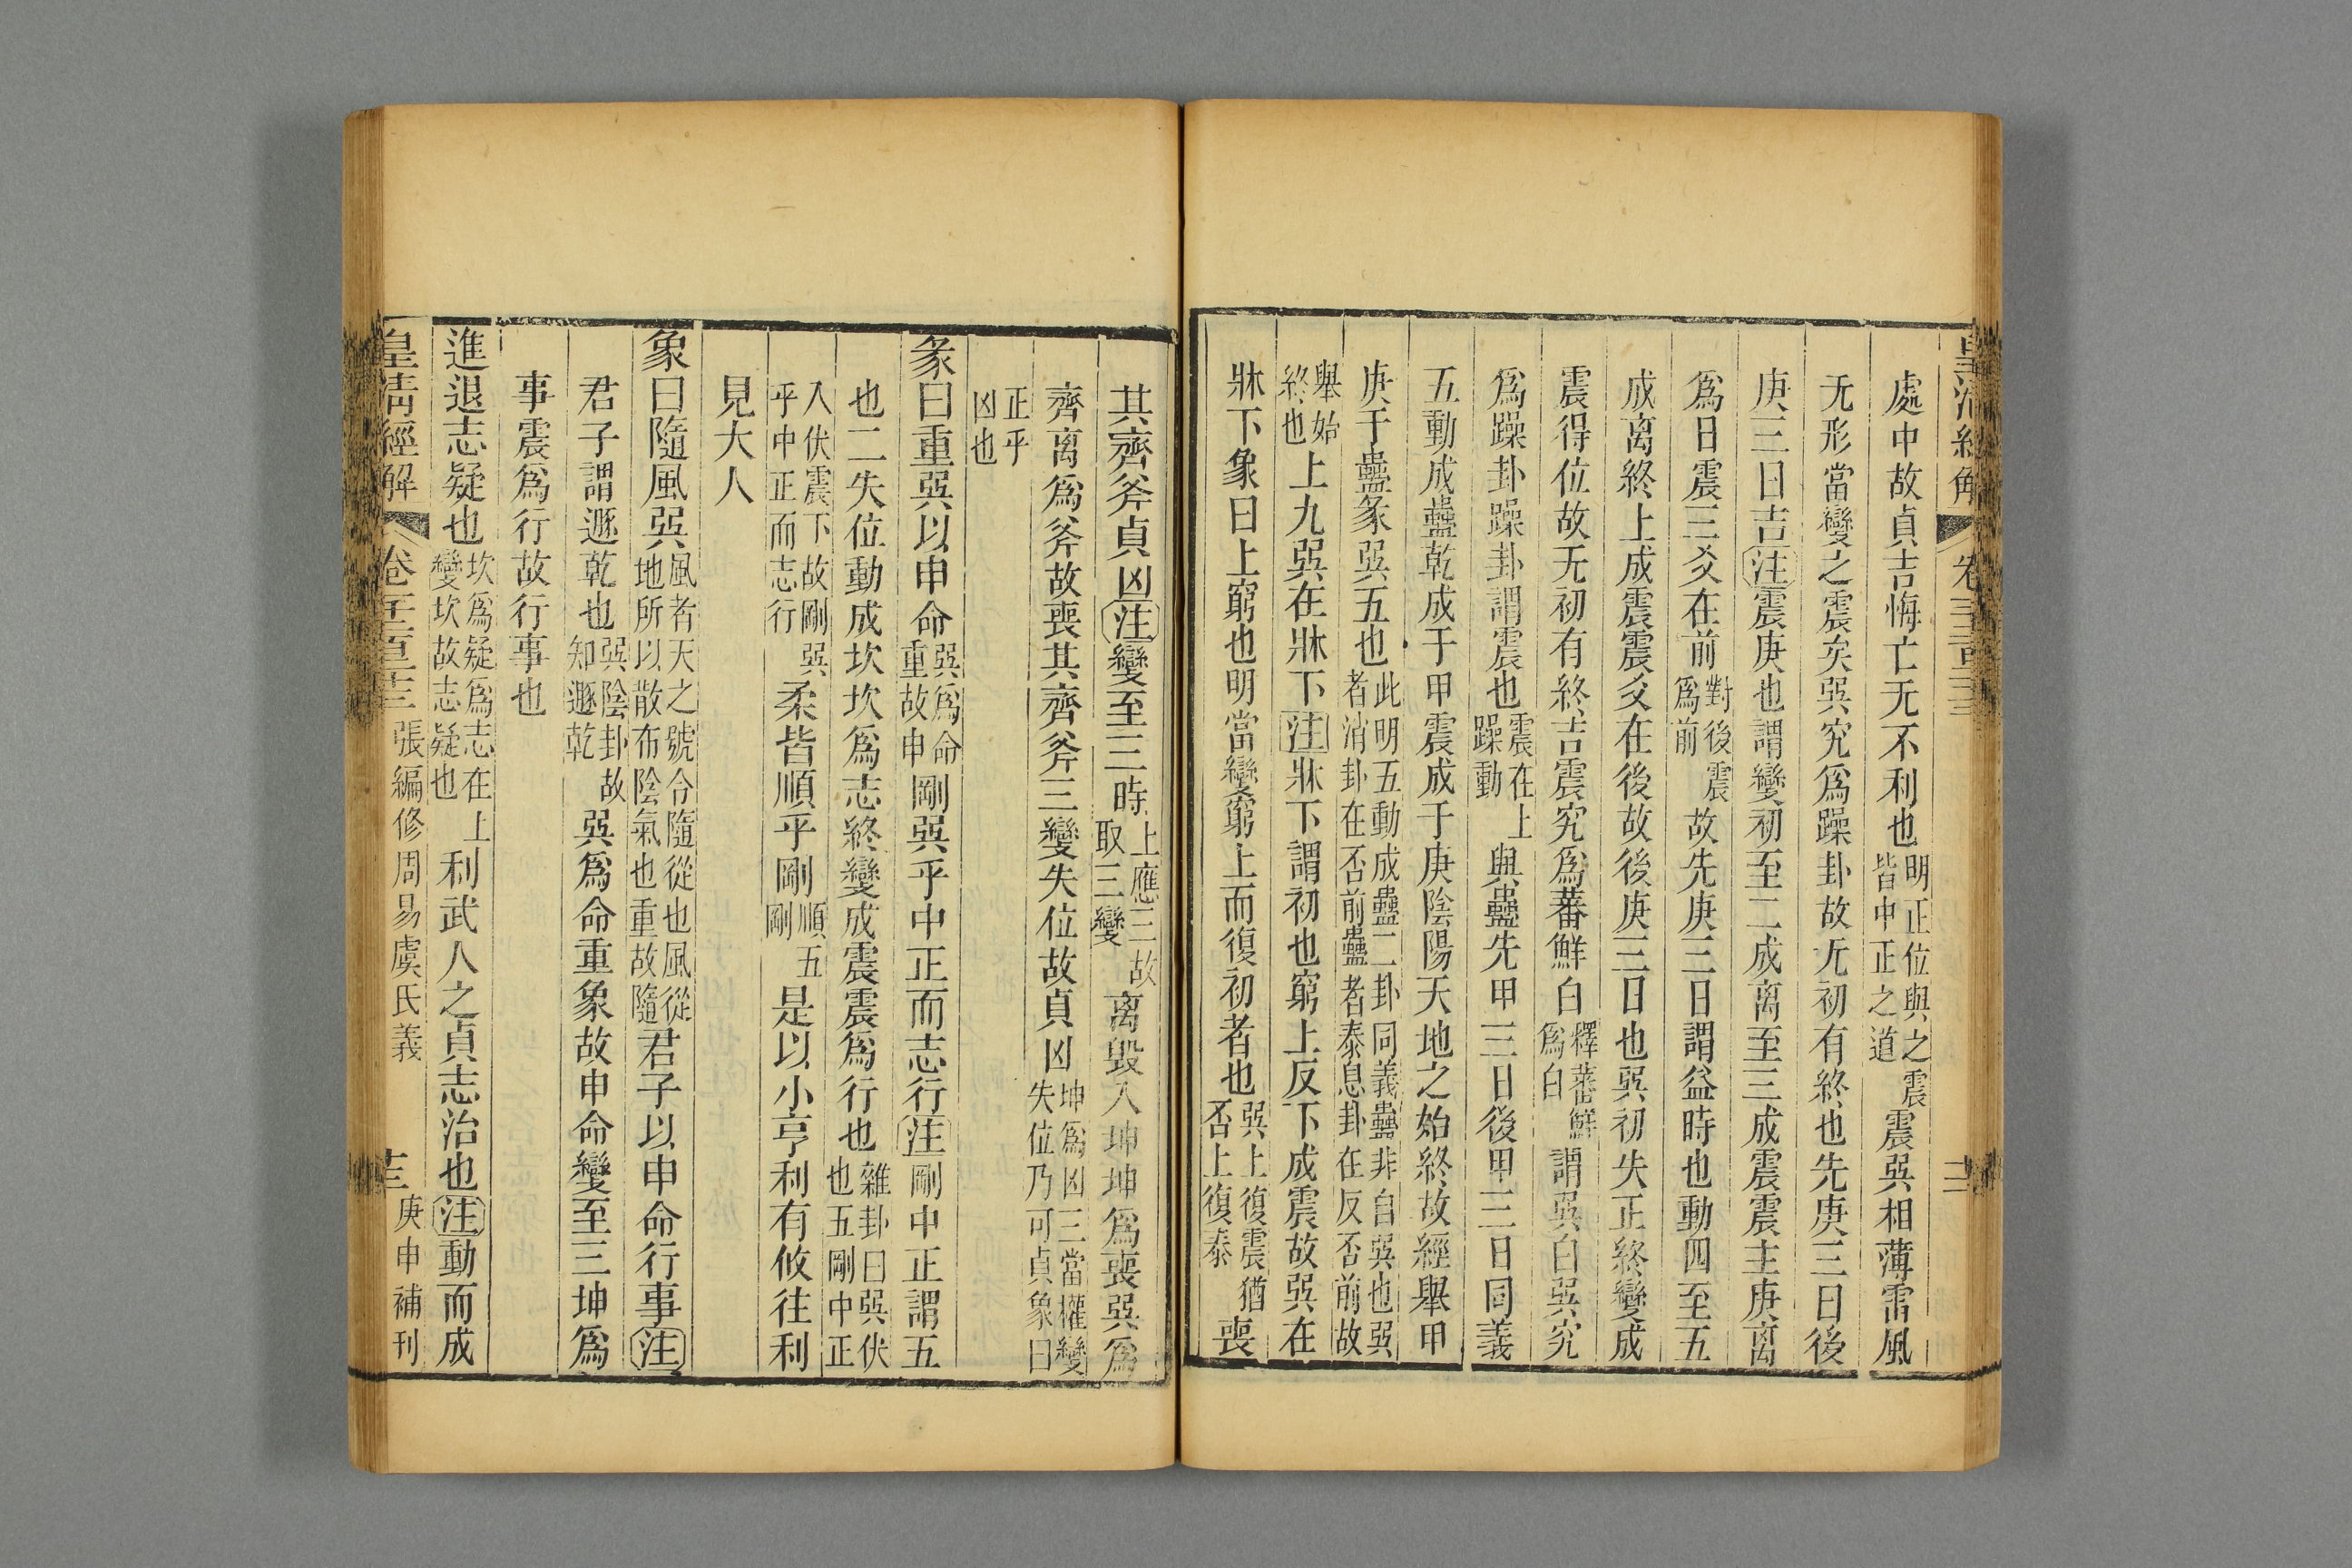 處中故貞吉悔亡无不利也明正位與之震皆中正之道震巽相薄雷風
无形當變之震矣巽究爲躁卦故无初有終也先庚三日後
庚三日吉注震庚也謂變初至二成离至三成震震主庚离
爲日震三爻在前對後震爲前故先庚三日謂益時也動四至五
成离終上成震震爻在後故後庚三日也巽初失正終變成
震得位故无初有終吉震究爲蕃鮮白釋蕃鮮爲白謂巽白巽究
爲躁卦躁卦謂震也震在上躁動與蠱先甲三日後甲三日同義
五動成蠱乾成于甲震成于庚陰陽天地之始終故經舉甲
庚于蠱彖巽五也此明五動成蠱二卦同義蠱非自巽也巽者消卦在否前蠱者泰息卦在反否前故
舉始終也上九巽在牀下注牀下謂初也窮上反下成震故巽在
牀下象曰上窮也明當變窮上而復初者也巽上復震猶否上復泰喪
其齊斧貞凶注變至三時上應三故取三變离毀入坤坤爲喪巽爲
齊离爲斧故喪其齊斧三變失位故貞凶坤爲凶三當權變失位乃可貞象曰
正乎凶也
彖曰重巽以申命巽爲命重故申剛巽乎中正而志行注剛中正謂五
也二失位動成坎坎爲志終變成震震爲行也雜卦曰巽伏也五剛中正
入伏震下故剛巽乎中正而志行柔皆順乎剛順五剛是以小亨利有攸往利
見大人
象曰隨風巽風者天之號令隨從也風從地所以散布陰氣也重故隨君子以申命行事注
君子謂遯乾也巽陰卦故知遯乾巽爲命重象故申命變至三坤爲
事震爲行故行事也
進退志疑也坎爲疑爲志在上變坎故志疑也利武人之貞志治也注動而成
皇清經解 卷 張編修周易虞氏義 庚申補刊